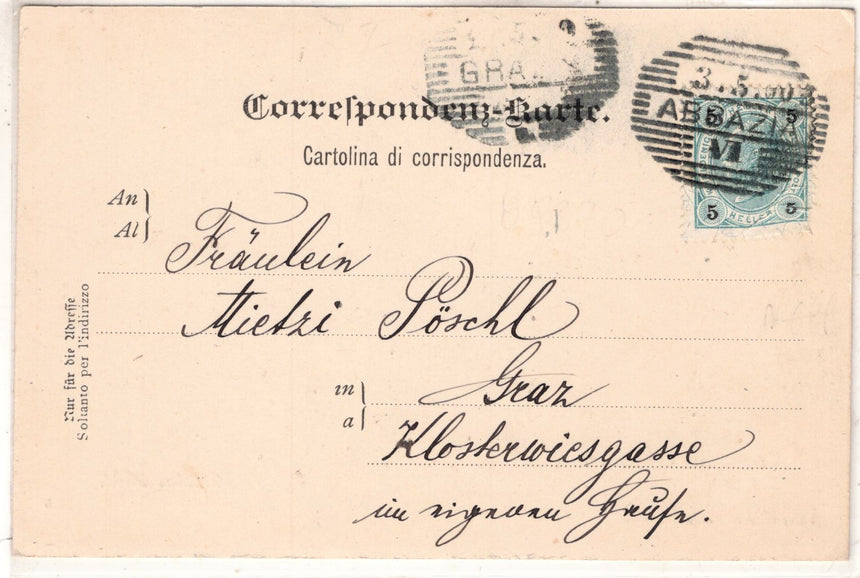 GRAZ
3.5.
ABBAZIA
VI
5 5
5 HELLER 5
Correſpondenz-Karte.
Cartolina di corrispondenza.
An
Al
Fräulein
Mietzi Pöschl
in
a
Graz
Klosterwiesgasse
im eigenen Hause.
Nur für die Adreſſe
Soltanto per l'indirizzo